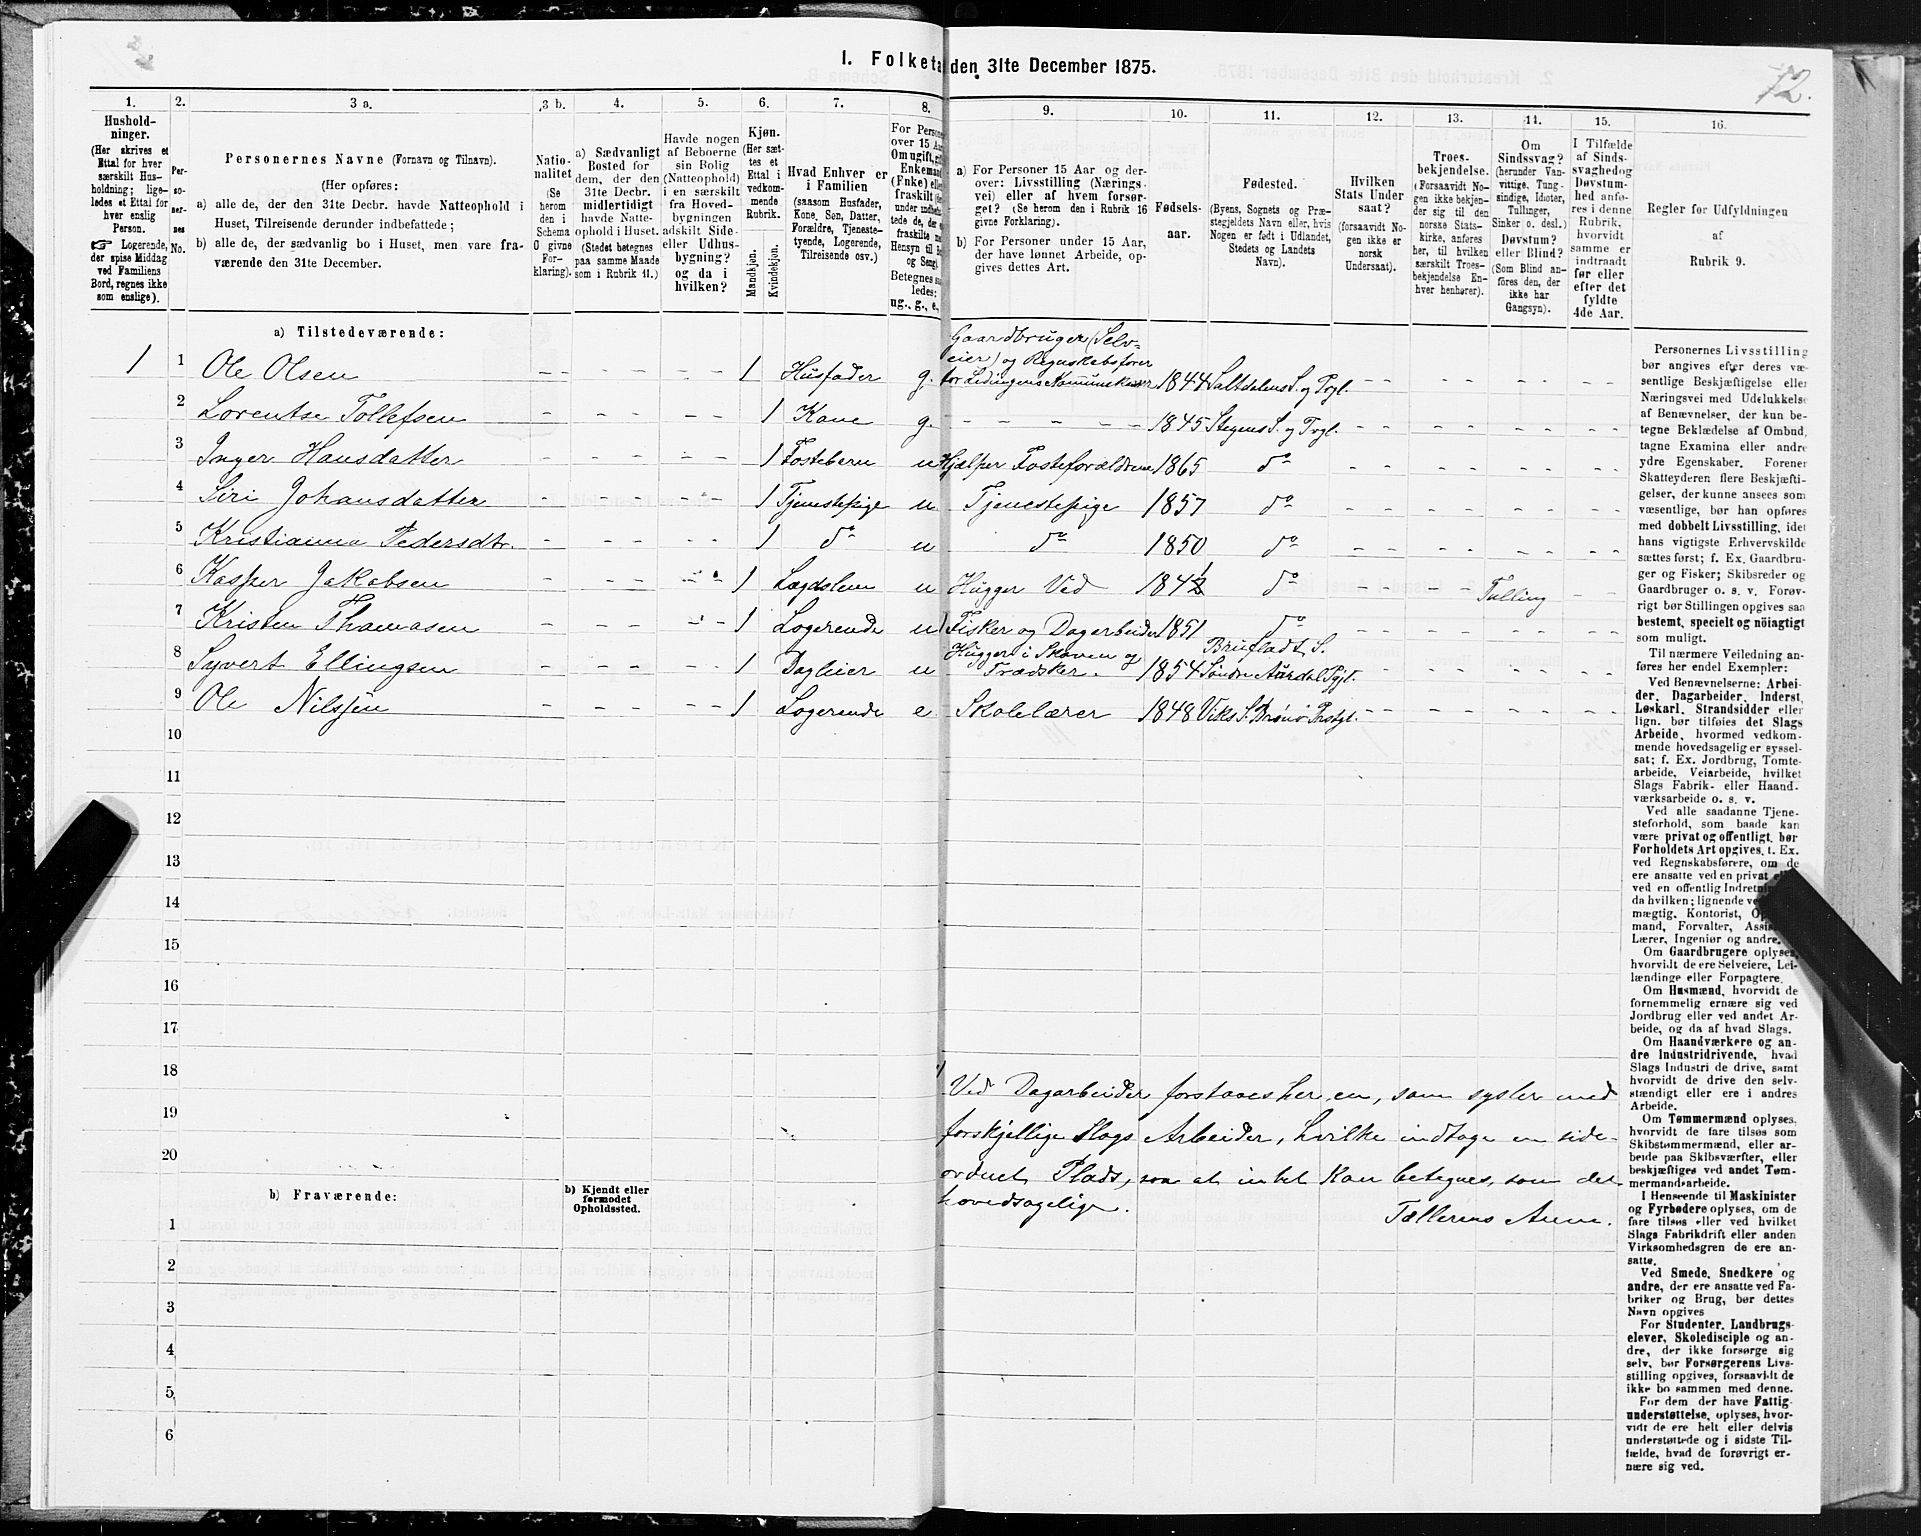 I. Folketa den 31te December 1875.
72.
1.
Hushold-
ninger.
(Her skrives et
Ettal for hver
særskilt Hus-
holdning; lige-
ledes et Ettal for
hver enslig
Person.
☞ Logerende,
der spise Middag
ved Familiens
Bord, regnes ikke
som enslige).
2.
Per-
so-
ner-
nes
No.
3 a.
Personernes Navne (Fornavn og Tilnavn).
(Her opføres:
a) alle de, der den 31te Decbr. havde Natteophold i
Huset, Tilreisende derunder indbefattede;
b) alle de, der sædvanlig bo i Huset, men vare fra-
værende den 31te December.
3 b.
Natio-
nalitet
(Se
herom
den i
Schema
O givne
For-
klaring).
4.
a) Sædvanligt
Bosted for
dem, der den
31te Decbr.
midlertidigt
havde Natte-
ophold i Huset.
(Stedet betegnes
paa samme Maade
som i Rubrik 11.)
5.
Havde nogen
af Beboerne
sin Bolig
(Natteophold)
i en særskilt
fra Hoved-
bygningen
adskilt Side-
eller Udhus-
bygning?
og da i
hvilken?
6.
Kjøn.
(Her sæt-
tes et
Ettal i
vedkom-
mende
Rubrik.
Mandkjøn.
Kvindekjøn.
7.
Hvad Enhver er
i Familien
(saasom Husfader,
Kone, Søn, Datter,
Forældre, Tjeneste-
tyende, Logerende,
Tilreisende osv.)
8.
For Persone
over 15 Aa
Om ugift, gi
Enkemand
(Enke) elle
fraskilt
under indbefat-
tede de, der
fraskilte m
Hensyn til
og Seng).
Betegnes saa
ledes:
ug., g., e.
9.
a) For Personer 15 Aar og der-
over: Livsstilling (Nærings-
vei) eller af hvem forsør-
get? (Se herom den i Rubrik 16
givne Forklaring).
b) For Personer under 15 Aar,
der have lønnet Arbeide, op-
gives dettes Art.
10.
Fødsels-
aar.
11.
Fødested.
(Byens, Sognets og Præ-
stegjeldets Navn eller, hvis
Nogen er født i Udlandet,
Stedets og Landets
Navn).
12.
Hvilken
Stats Under
saat?
(forsaavidt No-
gen ikke er
norsk
Undersaat).
13.
Troes-
bekjendelse.
(Forsaavidt No-
gen ikke bekjen-
der sig til den
norske Stats-
kirke, anføres
her, til hvilken
særskilt Troes-
bekjendelse En-
hver henhører).
14.
Om
Sindssvag?
(herunder Van-
vittige, Tung-
sindige, Idioter,
Tullinger,
Sinker o. desl.)
Døvstum?
eller Blind?
(Som Blind an-
föres den, der
ikke har
Gangsyn).
15.
I Tilfælde
af Sinds-
svaghed og
Døvstum-
hed anfø-
res i denne
Rubrik,
hvorvidt
samme er
indtraadt
før eller
efter det
fyldte
4de Aar.
16.
Regler for Udfyldningen
af
Rubrik 9.
a) Tilstedeværende:
1 1 Ole Olsen 1 Husfader g. Gaardbruger (Selv-
eier) og Regnskabsfører
for Lødingens Kommunekasse 1844 Saltdalens S. og Prgl.
2 Lorentse Tollefsen 1 Kone g. 1845 Stegens S. og Prgl.
3 Inger Hansdatter 1 Fostebarn u Hjælper Fosteforældrene 1865 do
4 Siri Johansdatter 1 Tjenestepige u Tjenestepige 1857 do
5 Kristianna Pedersdtr. 1 do u do 1850 do
6 Kasper Jakobsen 1 Lægdslem u Hugger Ved 1841 do Tulling
7 Kristen Thomasen 1 Logerende u 1) Fisker og Dagarbeider 1851 do
8 Syvert Ellingsen 1 Dagleier u Hugger i Skoven og
Fradsker. 1854 Bruflads S.
Søndre Aurdal Pgjl.
9 Ole Nilssen 1 Logerende e Skolelærer 1848 Viks S. Brønø Prstgl.
10
11
12
13
14
15
16
17
18
19
20
1) Ved Dagarbeider forstaaes her en, som sysler med
forskjellige Slags Arbeider, hvilke indtage en side-
ordnet Plads, saa at intet kan betegnes, som det
hovedsagelige.
Tællerens Anm.
b) Fraværende:
b) Kjendt eller
formodet
Opholdssted.
1
2
3
4
5
6
Personernes Livsstilling
bør angives efter deres væ-
sentlige Beskjæftigelse eller
Næringsvei med Udelukkelse
af Benævnelser, der kun be-
tegne Beklædelse af Ombud,
tagne Examina eller andre
ydre Egenskaber. Forener
Skatteyderen flere Beskjæfti-
gelser, der kunne ansees som
væsentlige, bør han opføres
med dobbelt Livsstilling, idet
hans vigtigste Erhvervskilde
sættes først; f. Ex. Gaardbru-
ger og Fisker; Skibsreder og
Gaardbruger o. s. v. Forøv-
rigt bør Stillingen opgives saa
bestemt, specielt og nöiagtigt
som muligt.
Til nærmere Veiledning an-
føres her endel Exempler:
Ved Benævnelserne: Arbei-
der, Dagarbeider, Inderst,
Løskarl, Strandsidder eller
lign. bør tilføies det Slags
Arbeide, hvormed vedkom-
mende hovedsagelig er syssel-
sat; f. Ex. Jordbrug, Tomte-
arbeide, Veiarbeide, hvilket
Slags Fabrik- eller Haand-
værksarbeide o. s. v.
Ved alle saadanne Tjene-
steforhold, som baade kan
være privat og offentligt, bør
Forholdets Art opgives, f. Ex.
ved Regnskabsførere, om de
ere ansatte ved en privat
ved en offentlig Indretnin
da hvilken; lignende ve
mægtig, Kontorist, O
mand, Forvalter, Assis
Lærer, Ingeniør og andre.
Om Gaardbrugere oplyses,
hvorvidt de ere Selveiere, Lei-
lændinge eller Forpagtere.
Om Husmænd, hvorvidt de
fornemmelig ernære sig ved
Jordbrug eller ved andet Ar-
beide, og da af hvad Slags.
Om Haandværkere og an-
dre Industridrivende, hvad
Slags Industri de drive, samt
hvorvidt de drive den selv-
stændigt eller ere i andres
Arbeide.
Om Tømmermænd oplyses,
hvorvidt de fare tilsøs som
Skibstømmermænd, eller ar-
beide paa Skibsværfter, eller
beskjæftiges ved andet Tøm-
mermandsarbeide.
I Henseende til Maskinister
og Fyrbødere oplyses, om de
fare tilsøs eller ved hvilket
Slags Fabrikdrift eller anden
Virksomhedsgren de ere an-
satte.
Ved Smede, Snedkere og
andre, der ere ansatte ved Fa-
briker og Brug, bør dettes
Navn opgives
For Studenter, Landbrugs-
elever, Skoledisciple og an-
dre, der ikke forsørge sig
selv, bør Forsørgerens Livs-
stilling opgives, forsaavidt de
ikke bo sammen med denne.
For dem der have Fattig-
understøttelse, oplyses, hvor-
vidt de ere helt eller delvis
understøttede og i sidste Til-
fælde, hvad de forøvrigt er-
nære sig ved.